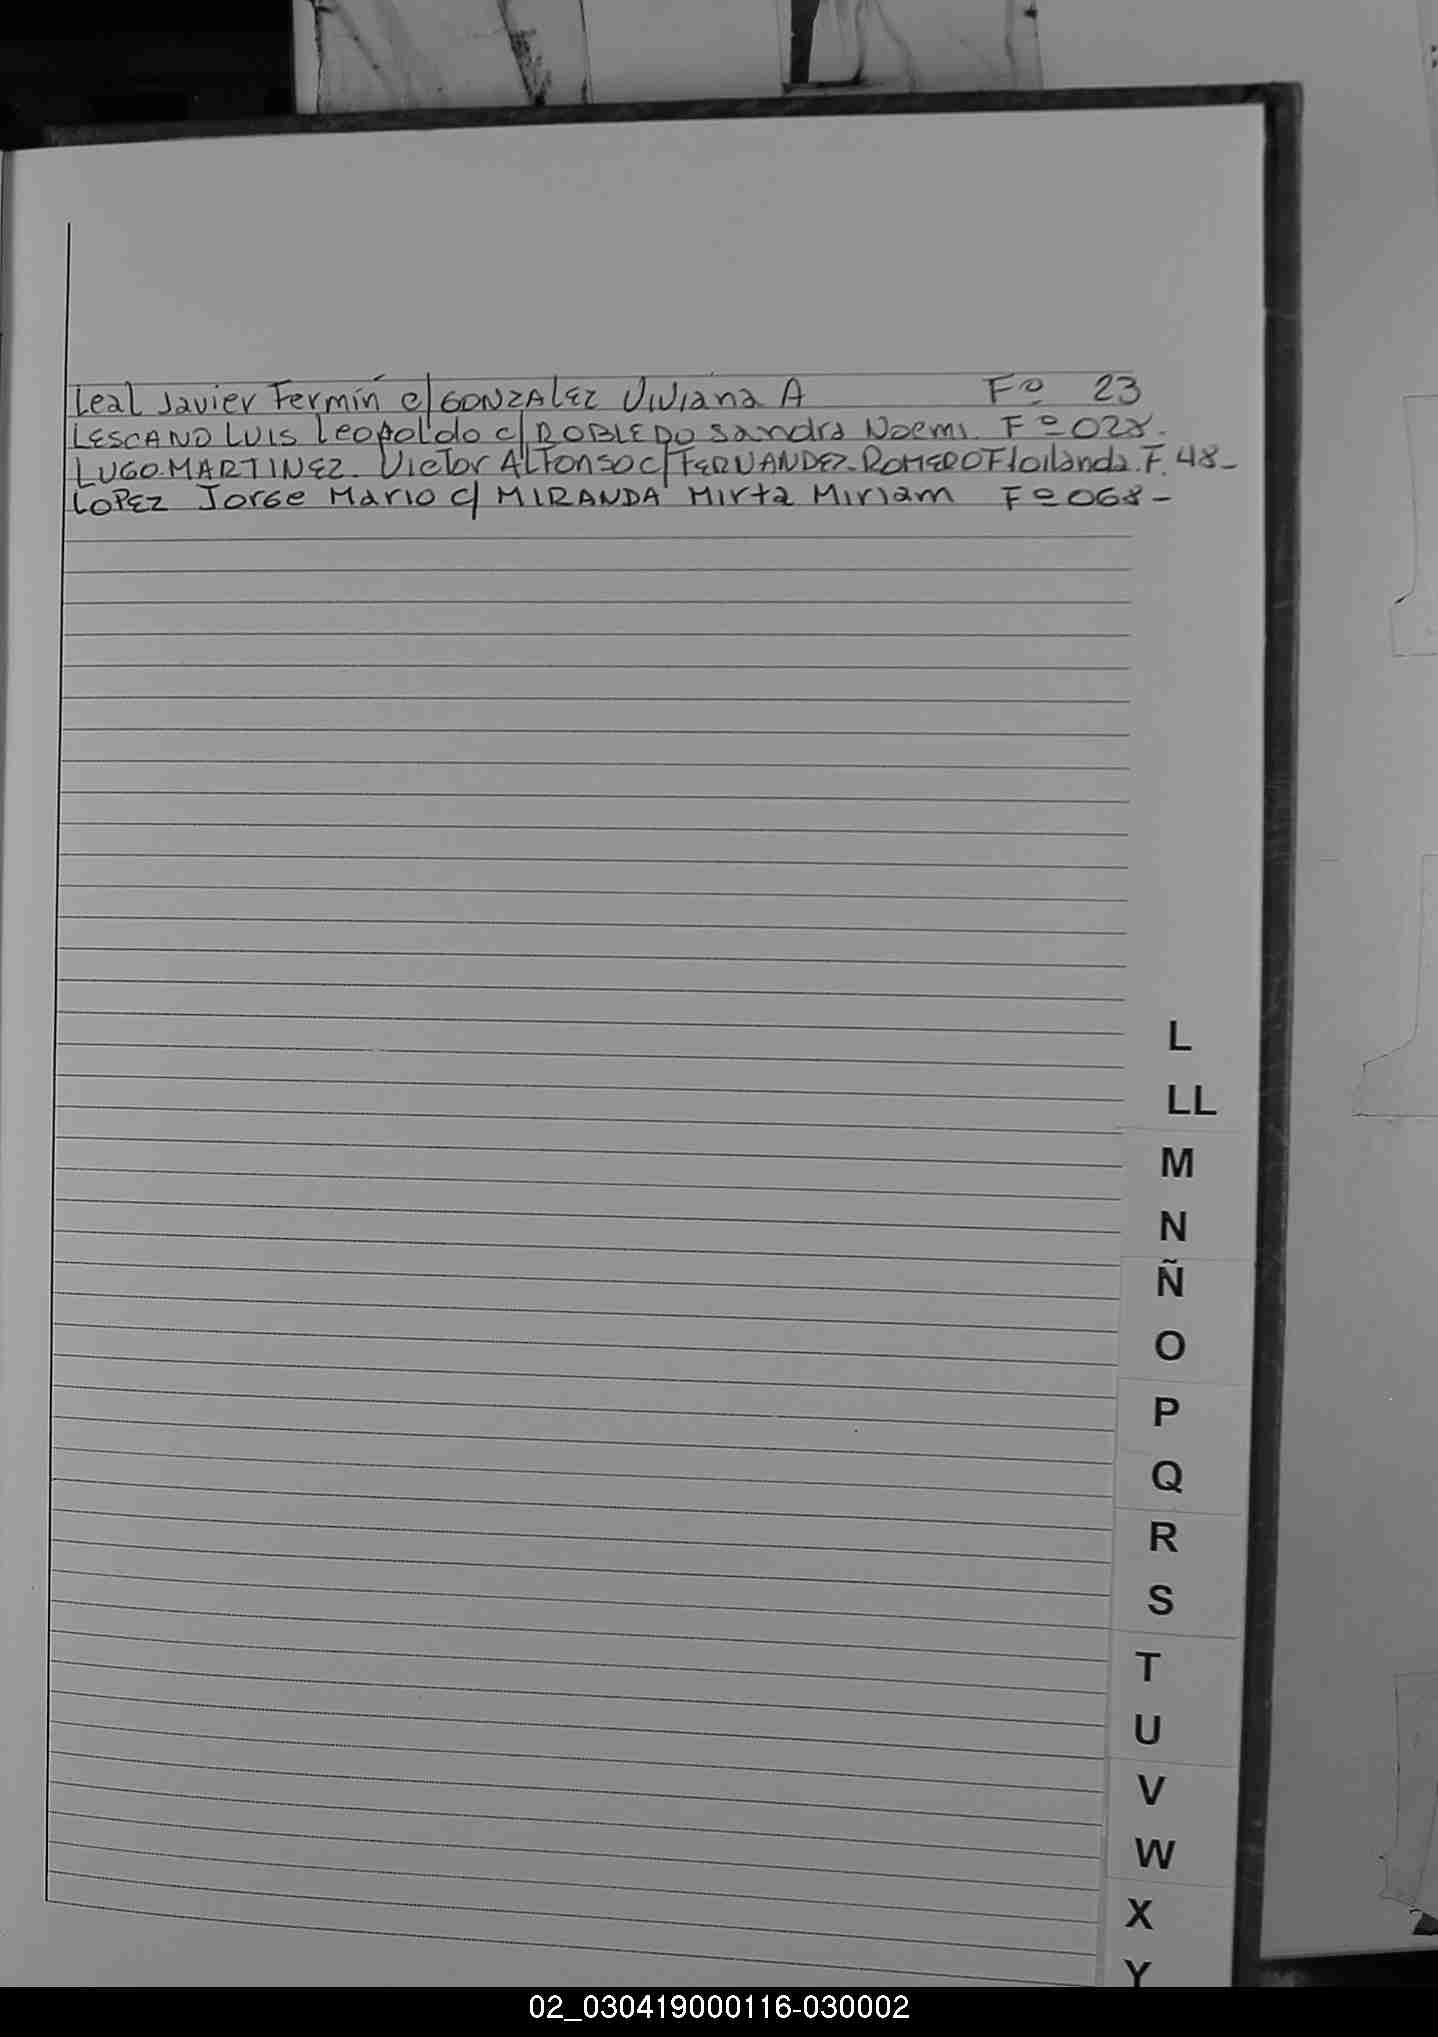 Leal Javier Fermín c/ GONZALEZ Viviana A Fº 23
LESCANO LUIS Leopoldo c/ ROBLEDO Sandra Noemi. Fº 028.
LUGO-MARTINEZ. Victor Alfonso c/ FERNANDEZ-ROMERO Floilanda. F. 48-
LOPEZ Jorge Mario c/ MIRANDA Mirta Miriam Fº 068-
L
LL
M
N
Ñ
O
P
Q
R
S
T
U
V
W
X
Y
02_030419000116-030002